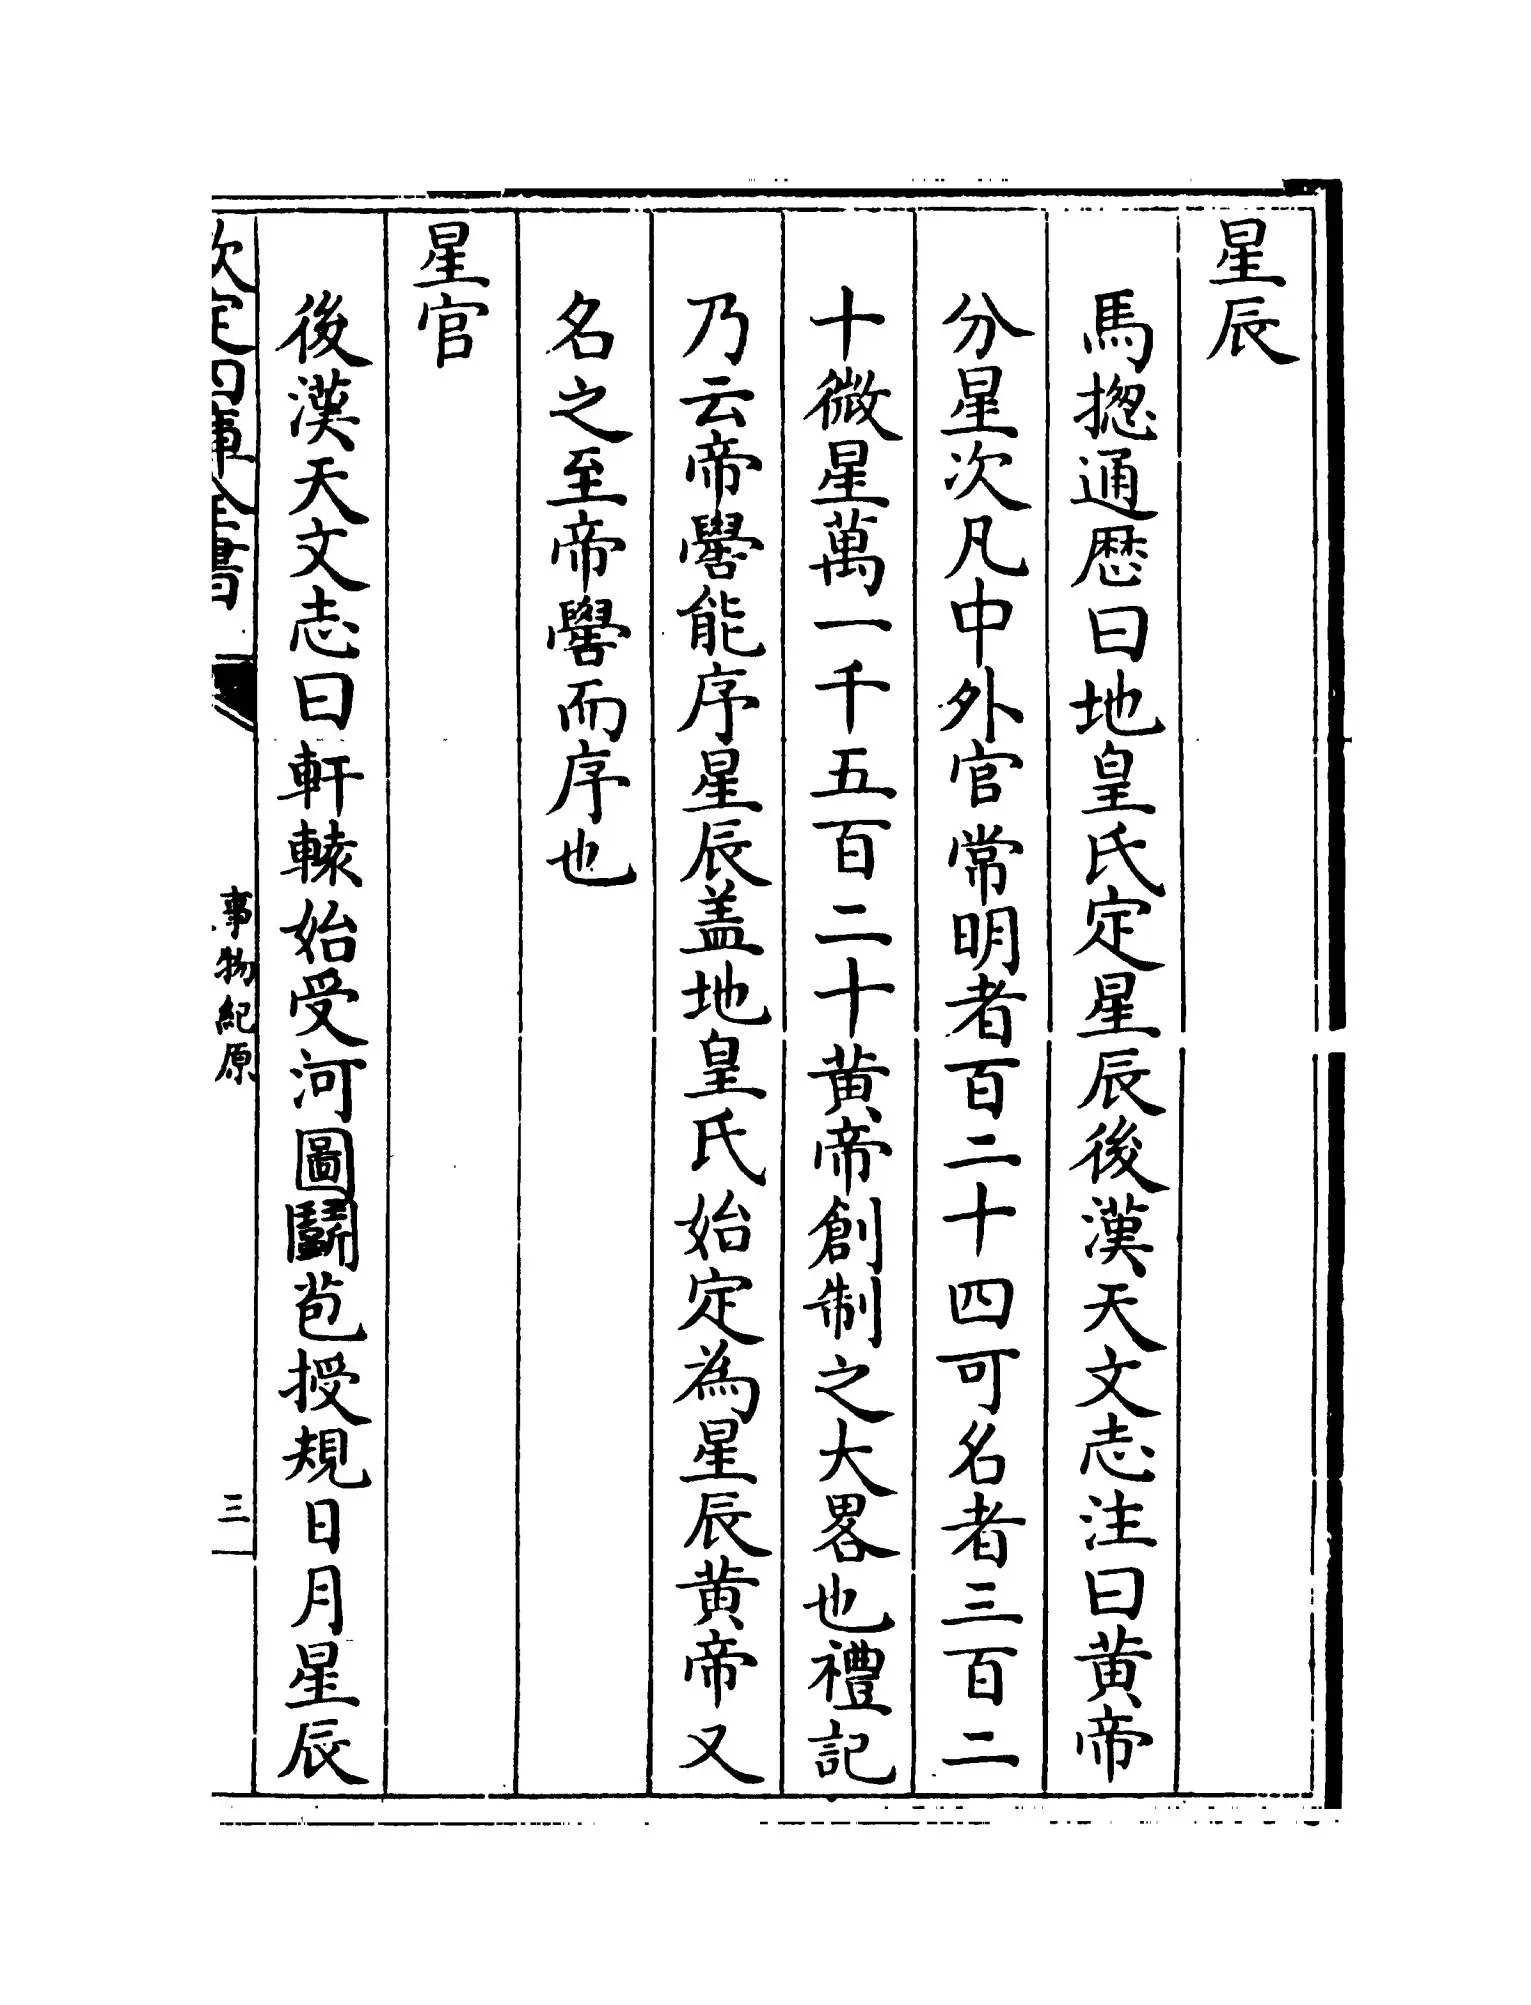 星辰
馬揔通厯曰地皇氏定星辰後漢天文志注曰黄帝
分星次凡中外官常明者百二十四可名者三百二
十微星萬一千五百二十黄帝創制之大畧也禮記
乃云帝嚳能序星辰盖地皇氏始定為星辰黄帝又
名之至帝嚳而序也
星官
後漢天文志曰軒轅始受河圖鬭苞授規日月星辰
欽定四庫全書
事物紀原
三